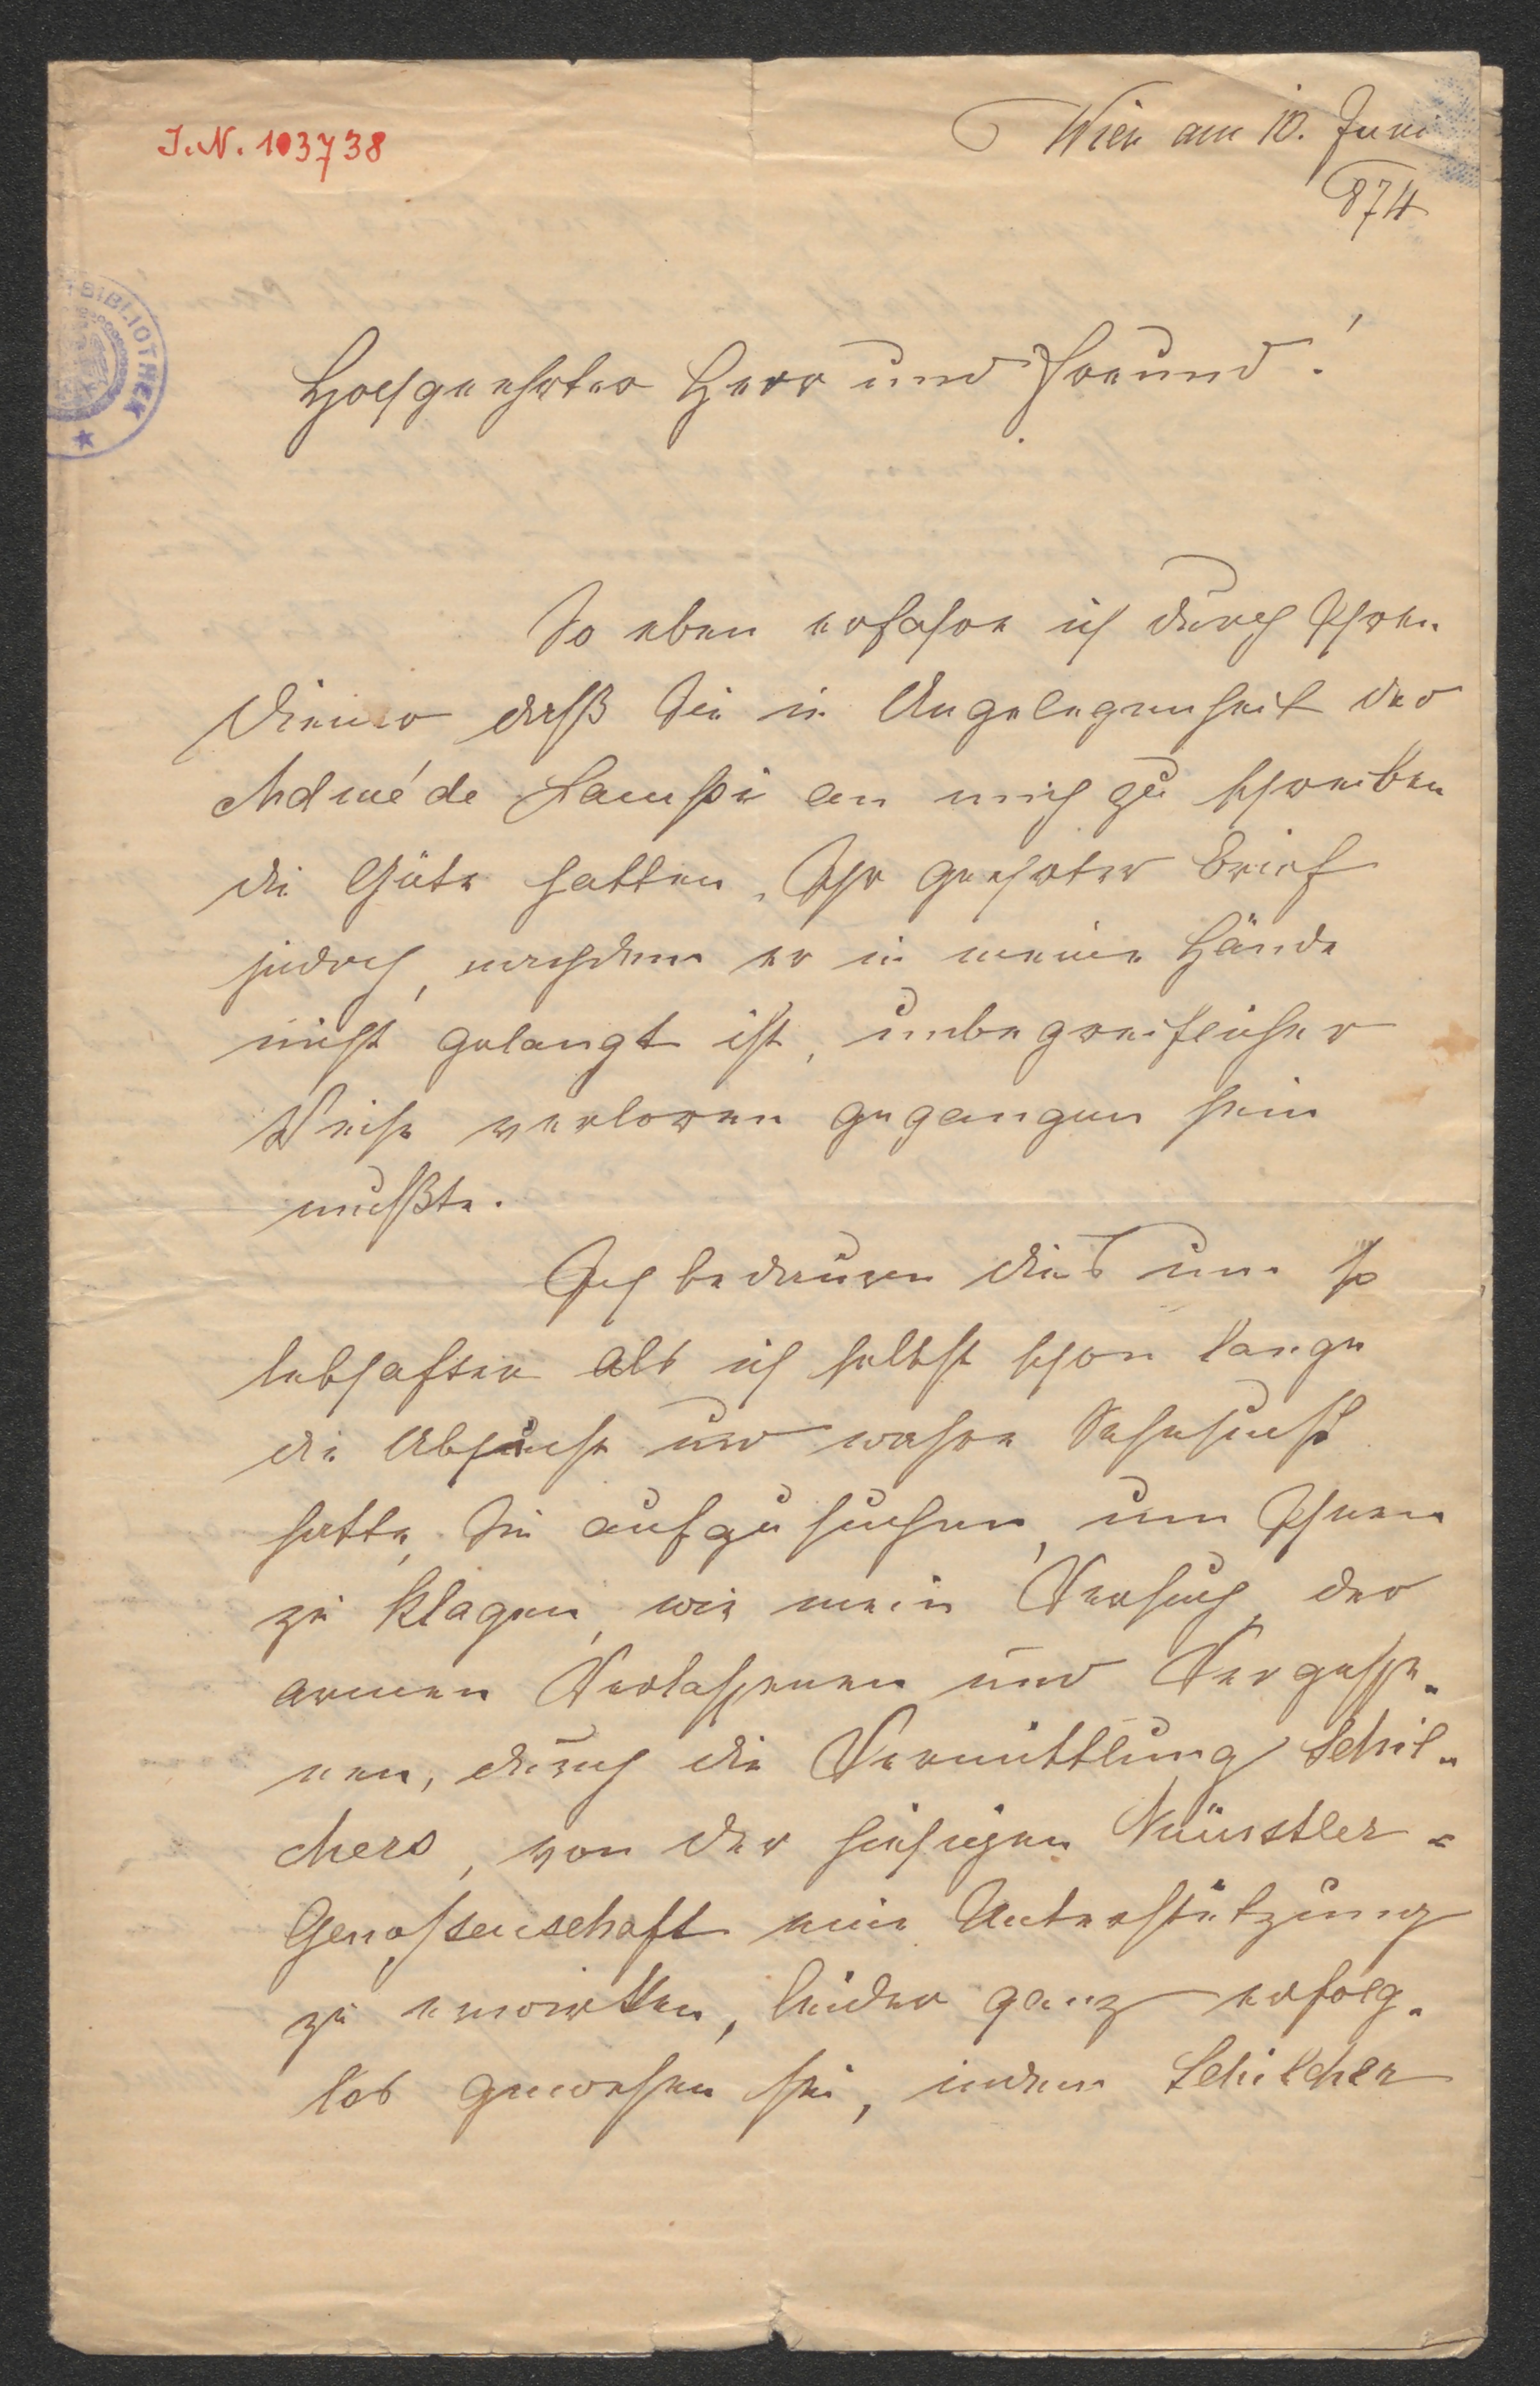 I.N. 103738
Wien am 10. Juni
874
BIBLIOTHEK
Hochgeehrter Herr und Freund!
So eben erfahre ich durch Ihren
Diener daß Sie in Angelegenheit der
Admée de Lampi an mich zu schreiben
die Güte hatten. Ihr geehrter Brief
jedoch, nachdem er in meine Hände
nicht gelangt ist, unbegreiflicher
Weise verloren gegangen sein
mußte.
Ich bedauere dies um so
lebhafter als ich selbst schon lange
die Absicht und wahre Sehnsucht
hatte, Sie aufzusuchen, um Ihnen
zu klagen, wie mein Versuch, der
armen Verlassenen und Vergesse-
nen, durch die Vermittlung Schil-
chers, von der hiesigen Künstler-
Genossenschaft eine Unterstützung
zu erwirken, leider ganz erfolg-
los gewesen sei, indem Schilcher